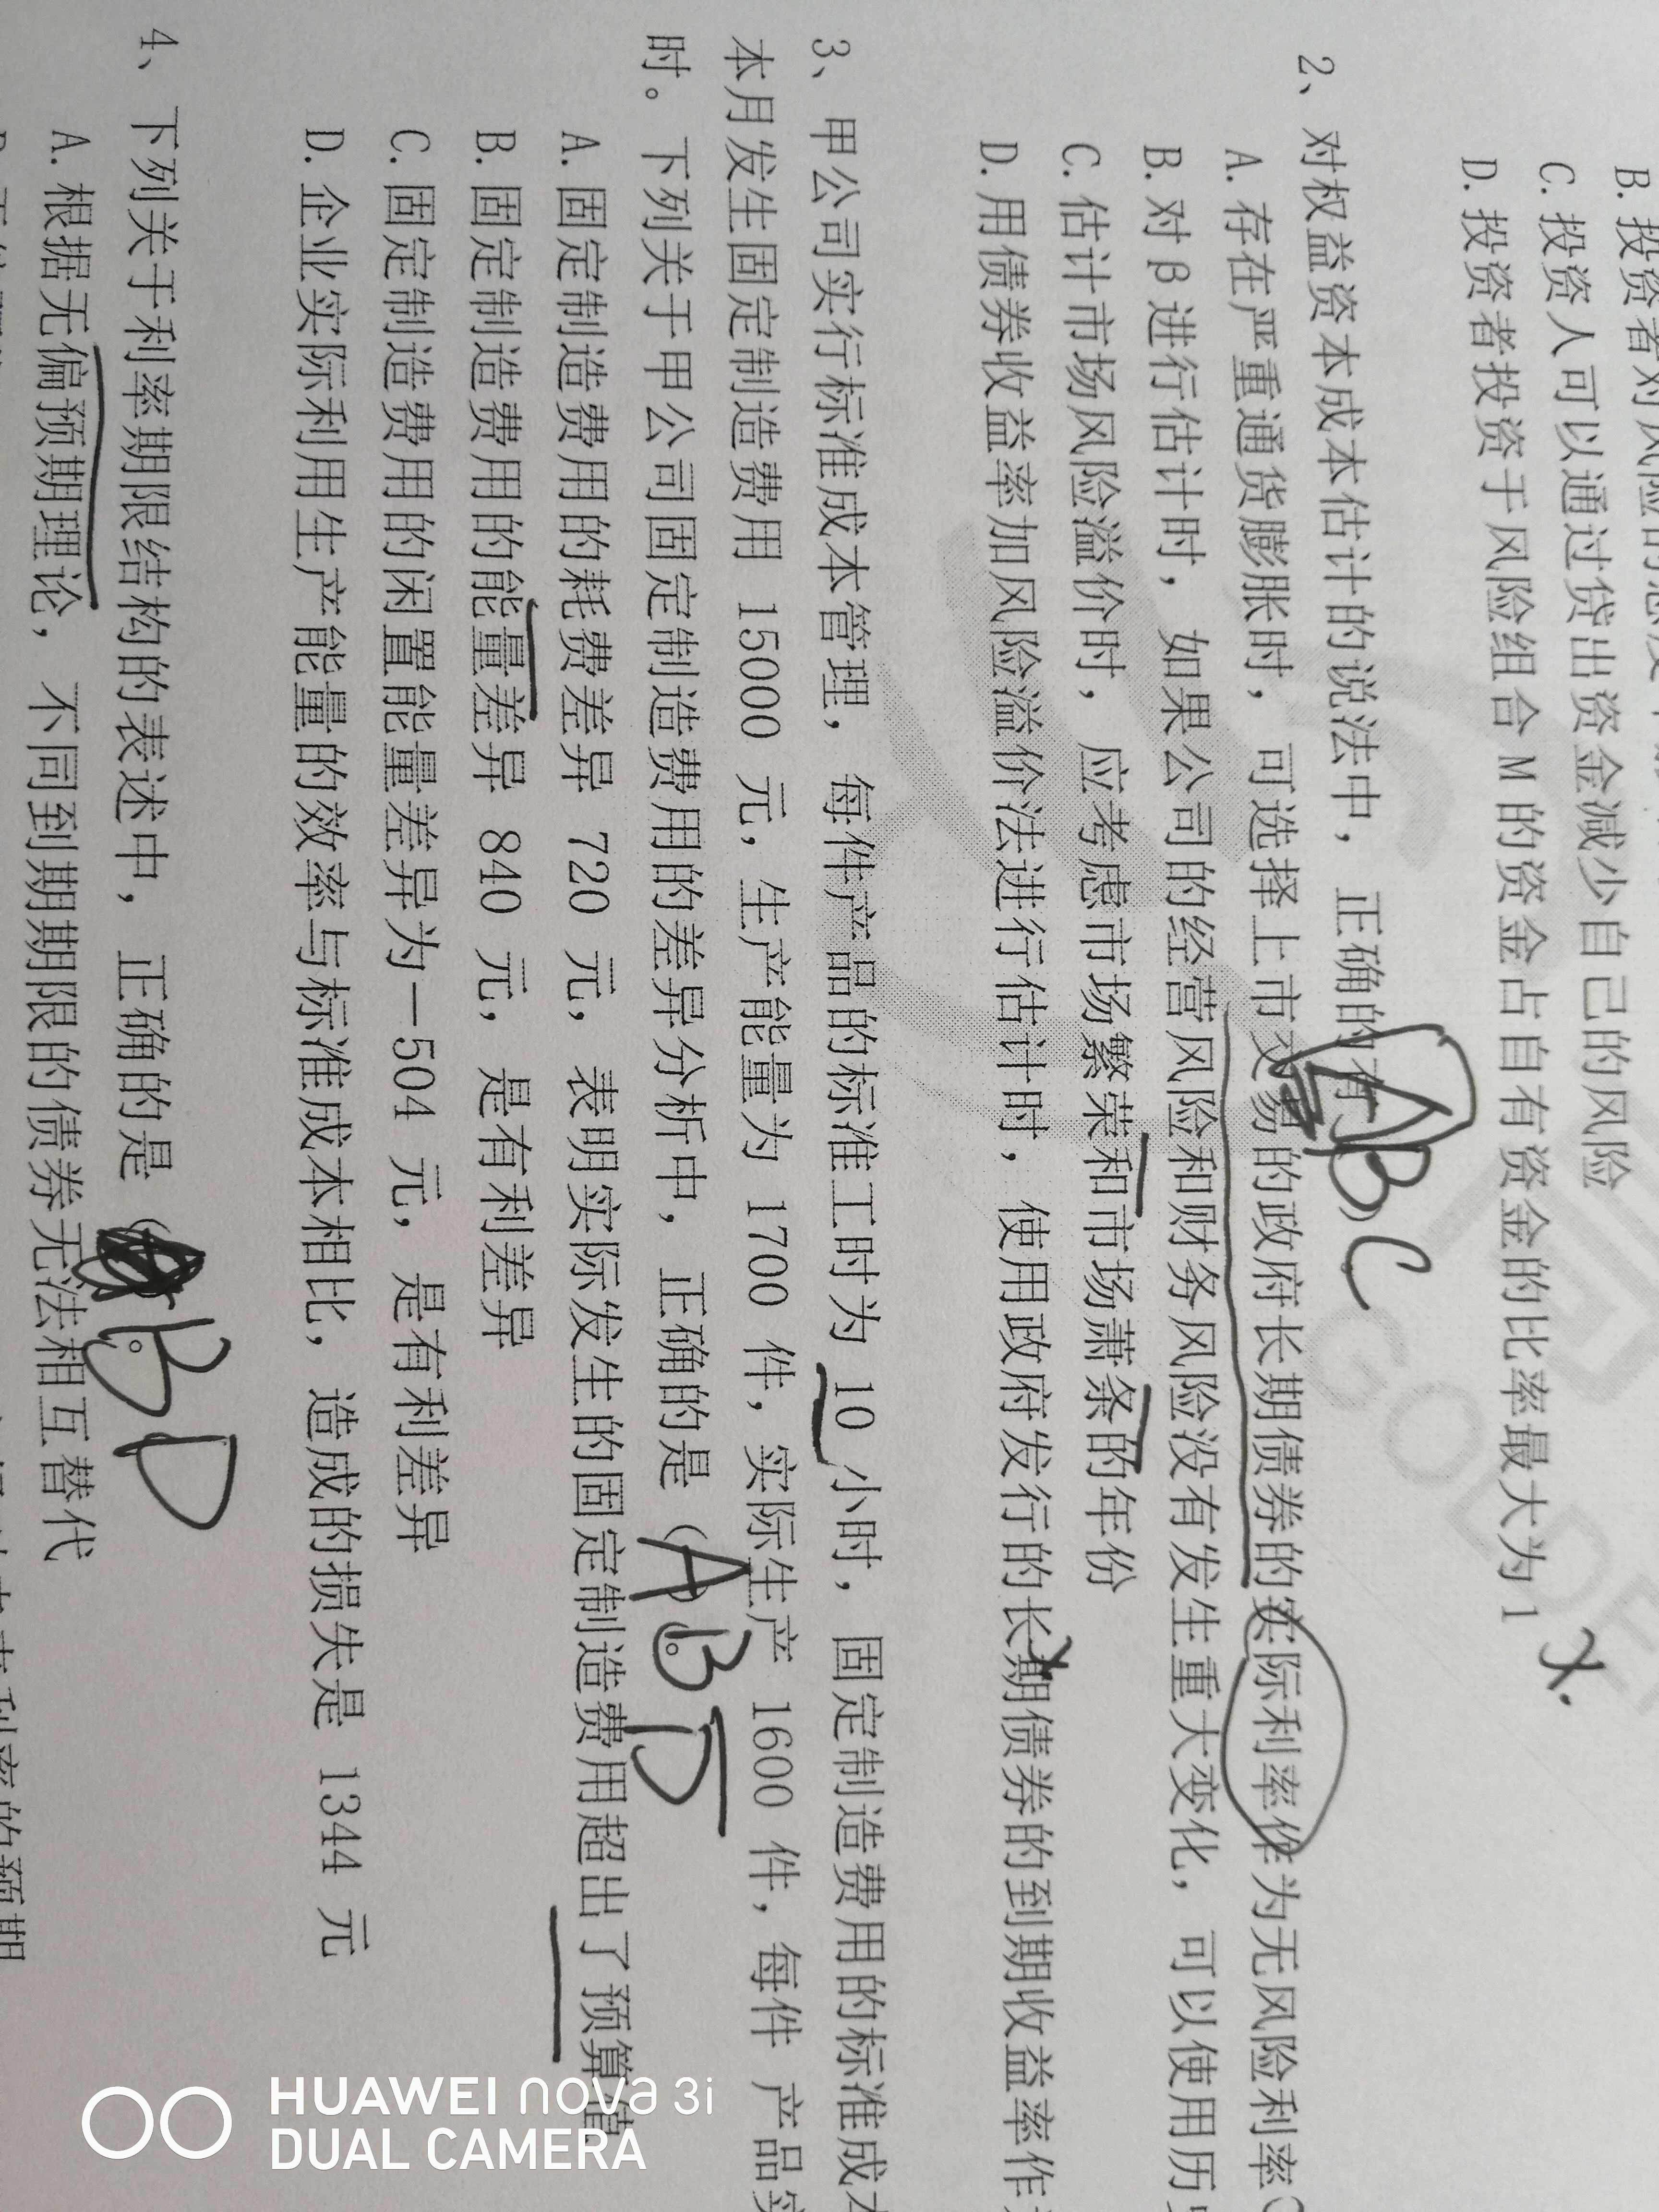 B. 投资者对风险的态度
C. 投资人可以通过贷出资金减少自己的风险
D. 投资者投资于风险组合 M 的资金占自有资金的比率最大为 1 X.
2、对权益资本成本估计的说法中，正确的有 ABC
A. 存在严重通货膨胀时，可选择上市交易的政府长期债券的实际利率作为无风险利率
B. 对β进行估计时，如果公司的经营风险和财务风险没有发生重大变化，可以使用历
C. 估计市场风险溢价时，应考虑市场繁荣和市场萧条的年份
D. 用债券收益率加风险溢价法进行估计时，使用政府发行的长期债券的到期收益率作
3、甲公司实行标准成本管理，每件产品的标准工时为 10 小时，固定制造费用的标准成
本月发生固定制造费用 15000 元，生产能量为 1700 件，实际生产 1600 件，每件 产品
时。下列关于甲公司固定制造费用的差异分析中，正确的是（ABD）。
A. 固定制造费用的耗费差异 720 元，表明实际发生的固定制造费用超出了预算值
B. 固定制造费用的能量差异 840 元，是有利差异
C. 固定制造费用的闲置能量差异为－504 元，是有利差异
D. 企业实际利用生产能量的效率与标准成本相比，造成的损失是 1344 元
4、下列关于利率期限结构的表述中，正确的是（BD。
A. 根据无偏预期理论，不同到期期限的债券无法相互替代
HUAWEI nova 3i
DUAL CAMERA